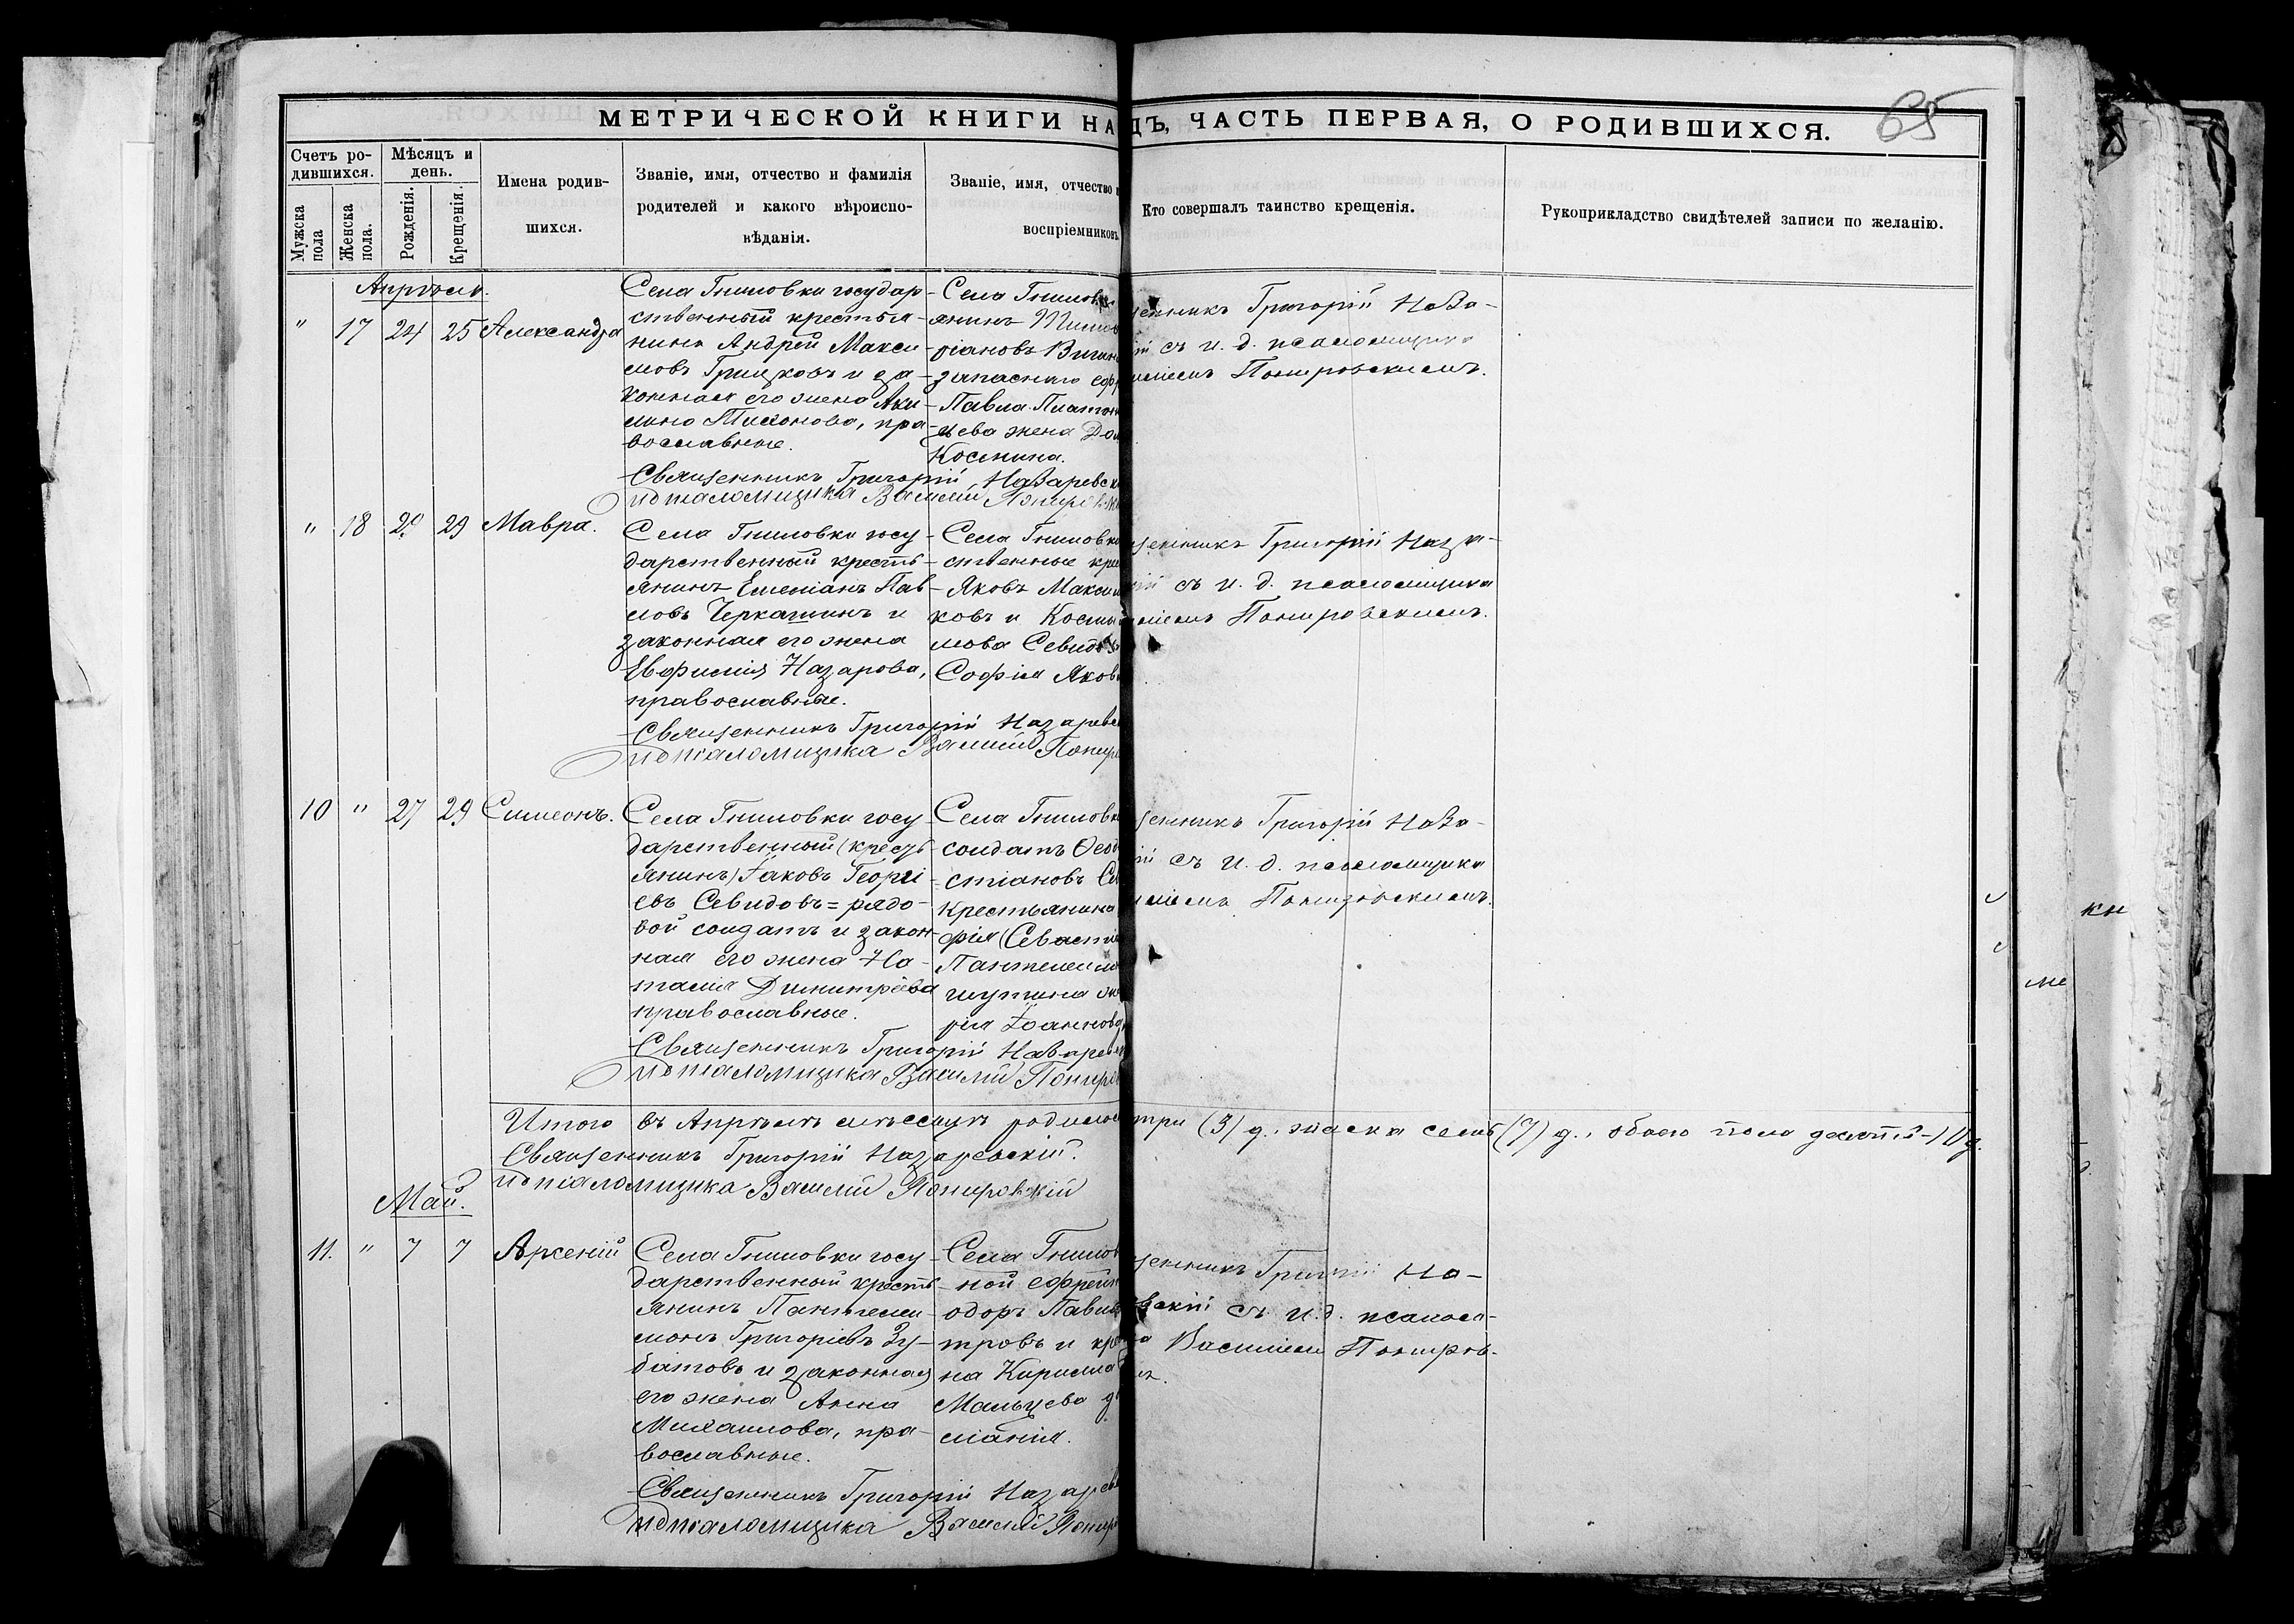 МЕТРИЧЕСКОЙ КНИГИ НА ДЪ, ЧАСТЬ ПЕРВАЯ, О РОДИВШИХСЯ.
65
Счетъ ро-
дившихся.
Мужска
пола
Женска
пола.
Мѣсяцъ и
день.
Рожденія.
Крещенія.
Имена родив-
шихся.
Званіе, имя, отчество и фамилія
родителей и какого вѣроиспо-
вѣданія.
Званіе, имя, отчество
воспріемниковъ
Кто совершалъ таинство крещенія.
Рукоприкладство свидѣтелей записи по желанію.
Апрѣль.
" 17 24 25 Александра
Села Гниловки государ-
ственный крестья-
нинъ Андрей Макси-
мовъ Грицковъ и за-
конная его жена Аки-
лина Тихонова, пра-
вославные.
Села Гнилов
янинъ
ріановъ
запаснаго
Павла Платон
цева жена
Космина.
Григорій Наза-
съ и. д. псаломщика
Понировскимъ.
Священникъ Григорій Назаревск
ид псаломщика Василій Пониров
" 18 29 Мавра.
Села Гниловки госу-
дарственный кресть-
янинъ Емеліанъ Пав-
ловъ Черкашинъ и
законная его жена
Евфимія Назарова,
православные.
Села Гниловк
ственные кре
Яковъ Макси
ковъ и Косм
мова Севидо
Софія Яков
Григорій Наза-
съ и. д. псаломщика
Понировскимъ.
Священникъ Григорій Назаревс
ид псаломщика Василій Пониро
10 " 27 29 Симеонъ.
Села Гниловки госу-
дарственный (кресть-
янинъ) Іаковъ Георгі-
евъ Севидовъ = рядо-
вой солдатъ и закон-
ная его жена На-
талія Димитріева
православные.
Села Гниловк
солдатъ Ѳеод
стіановъ Се
крестьянина
фія (Севасті
Пантелеим
рія Іоаннов
Григорій Наза-
съ и. д. псаломщика
Понировскимъ.
Священникъ Григорій Назарев
ид псаломщика Василій Пониро
Итого въ Апрѣлѣ мѣсяцѣ родилос три (3) д., женска семь (7) д., обоего пола десять - 10 д.
Священникъ Григорій Назаревскій.
ид псаломщика Василій Понировскій
Май.
11. " 7 7 Арсеній
Села Гниловки госу-
дарственный кресть-
янинъ Пантелеи-
монъ Григоріевъ Зу-
батовъ и законная
его жена Анна
Михаилова, пра-
вославные.
Села Гнилов
ной ефрейт
одоръ Павло
тровъ и кре
на Кирилла
Мальцева
Григорій На-
вскій съ и. д. псалом-
Василіемъ Пониров-
Священникъ Григорій Назарев
ид псаломщика Василій Пониро
кн
ме